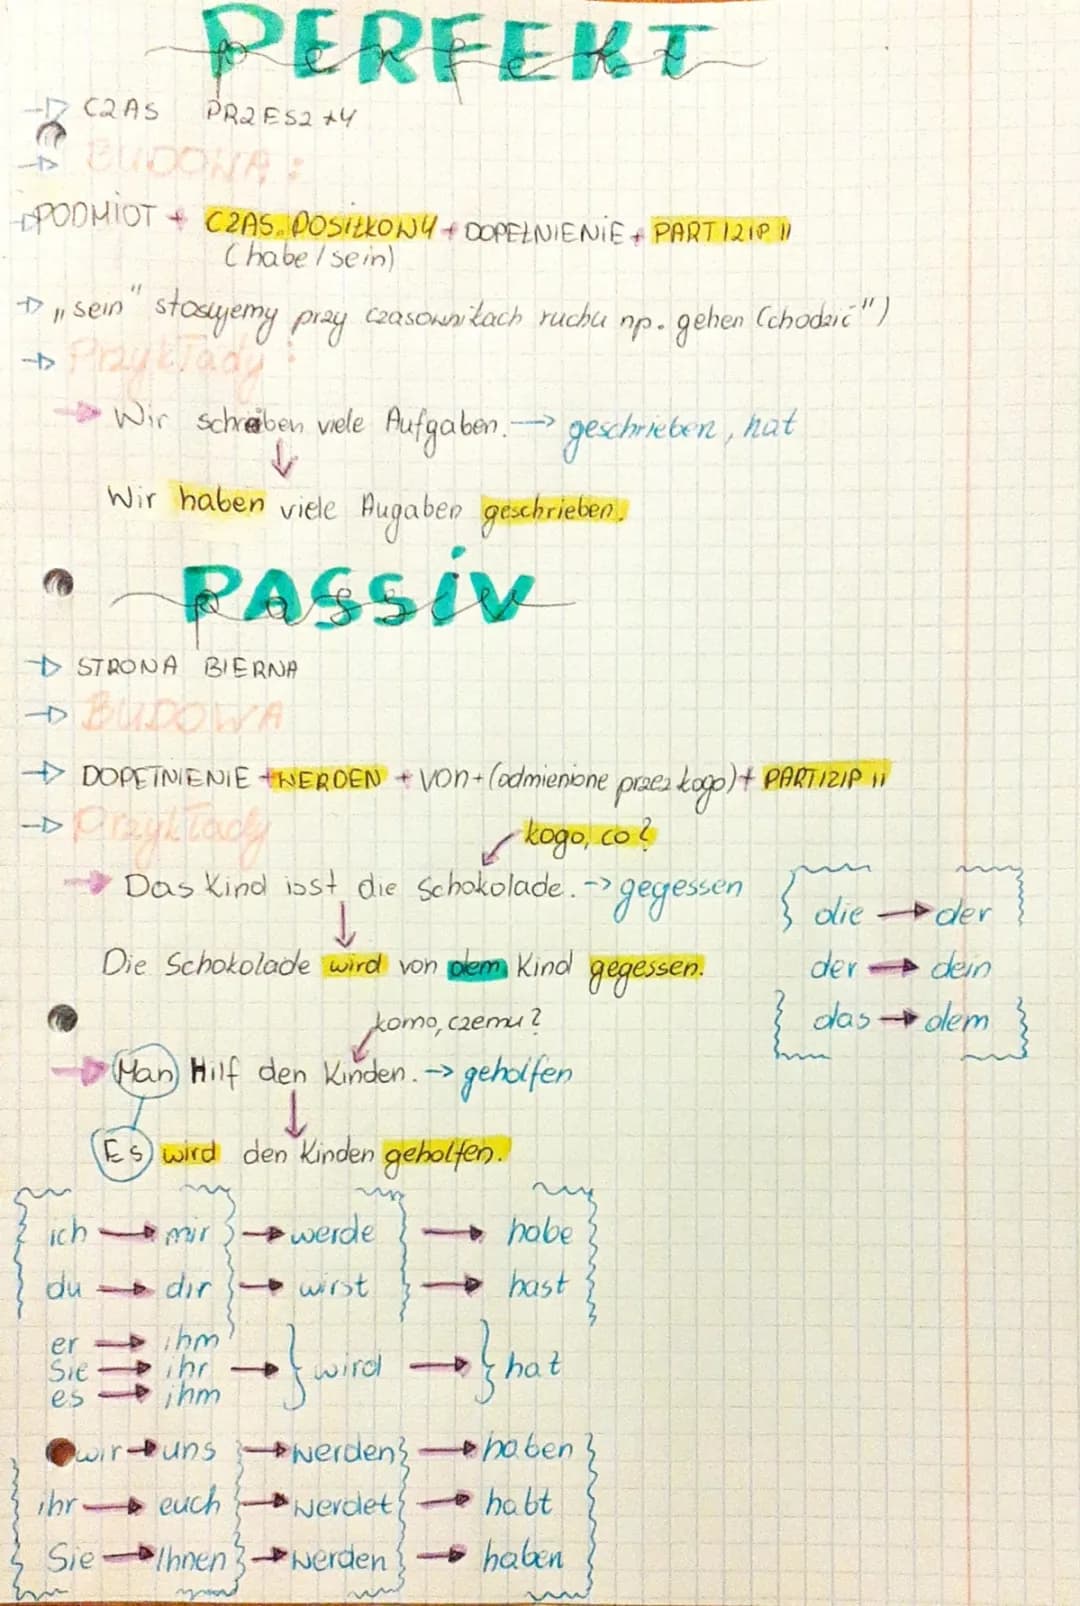 PERFEKT
perfekt
CZAS PRZESZŁY
BUDOWA:
PODMIOT + CZAS. POSIŁKOWY + DOPEŁNIENIE + PARTIZIP II
(habe/sein)
„sein" stosujemy przy czasownikach ruchu np. gehen (chodzić")
Przykłady:
Wir schreiben viele Aufgaben. → geschrieben, hat
Wir haben viele Augaben geschrieben.
PASSiV
passiv
STRONA BIERNA
BUDOWA
DOPEŁNIENIE + WERDEN + von + (odmienione przez kogo) + PARTIZIP II
Przykłady
kogo, co?
Das Kind isst die Schokolade. → gegessen
die → der
Die Schokolade wird von dem Kind gegessen.
der → dein
das → dem
komo, czemu?
Man Hilf den Kinden. → geholfen
Es wird den Kinden geholfen.
ich → mir → werde → habe
du → dir → wirst → hast
er → ihm
Sie → ihr → wird → hat
es → ihm
wir → uns → werden → haben
ihr → euch → werdet → habt
Sie → Ihnen → werden → haben